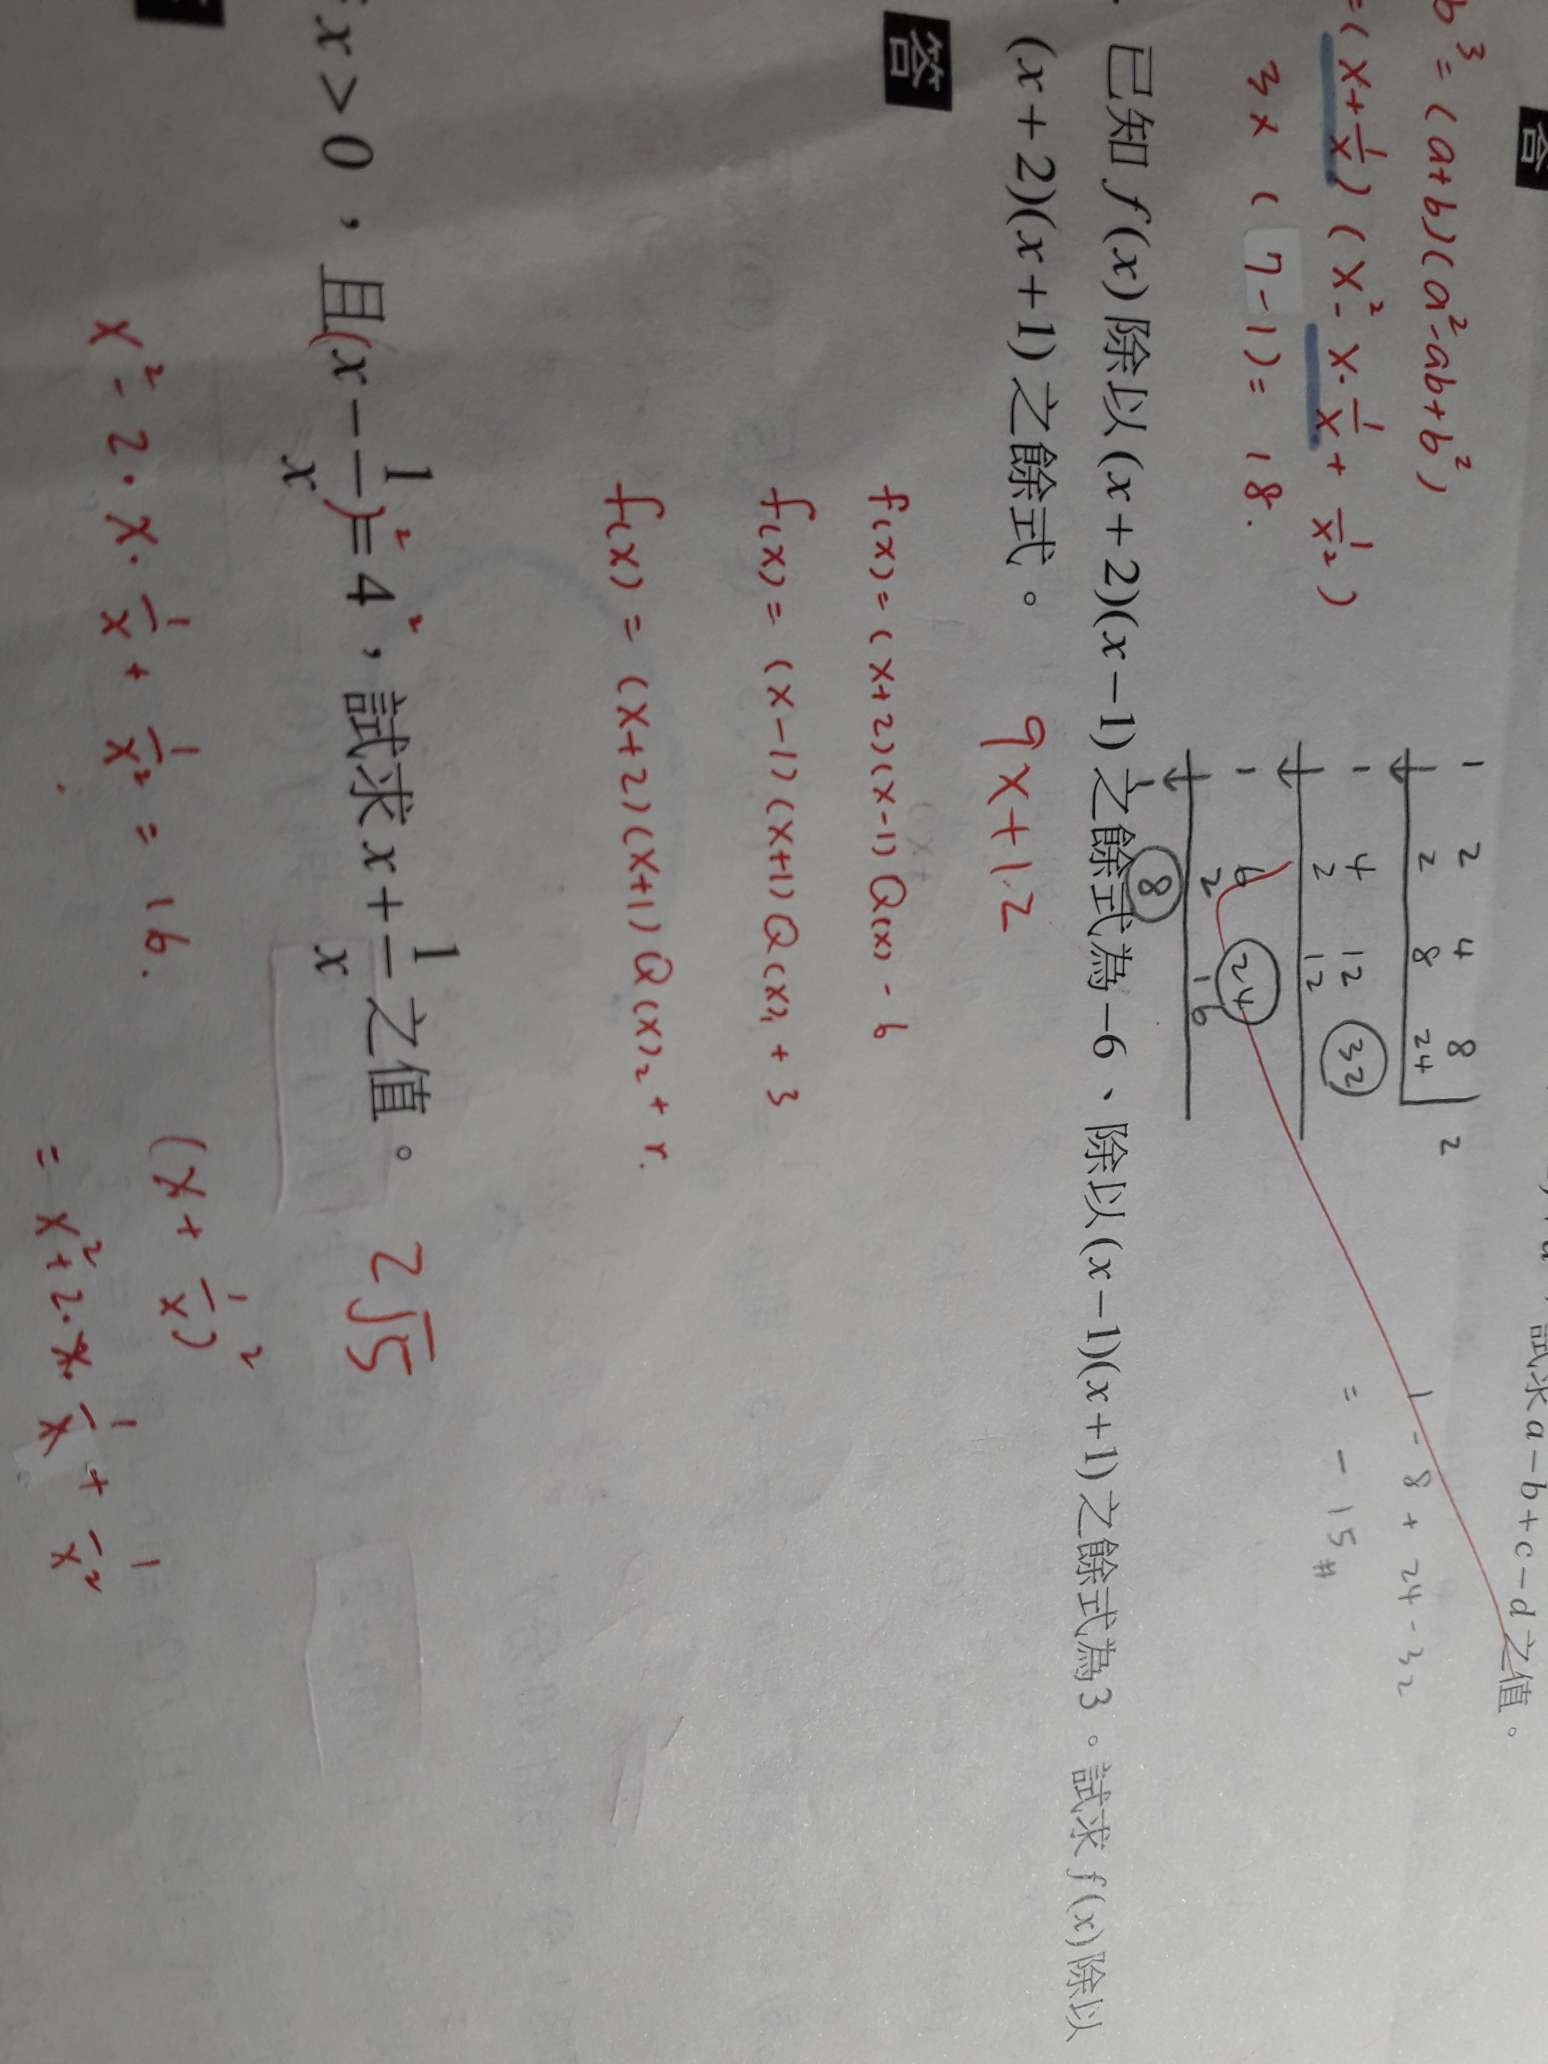 答
b³=(a+b)(a²-ab+b²)
=(x+1/x)(x²-x·1/x+1/x²)
3×(7-1)=18.
試求a-b+c-d之值。
1 2 4 8 | 2
2 8 24
1 4 12 (32)
2 12
1 6 (24)
2 16
1 (8)
1-8+24-32
=-15#
已知 f(x) 除以 (x+2)(x-1) 之餘式為-6、除以(x-1)(x+1)之餘式為3。試求 f(x)除以
(x+2)(x+1)之餘式。 9x+12
答
f(x)=(x+2)(x-1)Q(x)-6
f(x)=(x-1)(x+1)Q(x)₁+3
f(x)=(x+2)(x+1)Q(x)₂+r.
x>0,且(x-1/x)²=4²,試求x+1/x之值。 2√5
x²-2·x·1/x+1/x²=16.
(x+1/x)²
=x²+2·x·1/x+1/x²